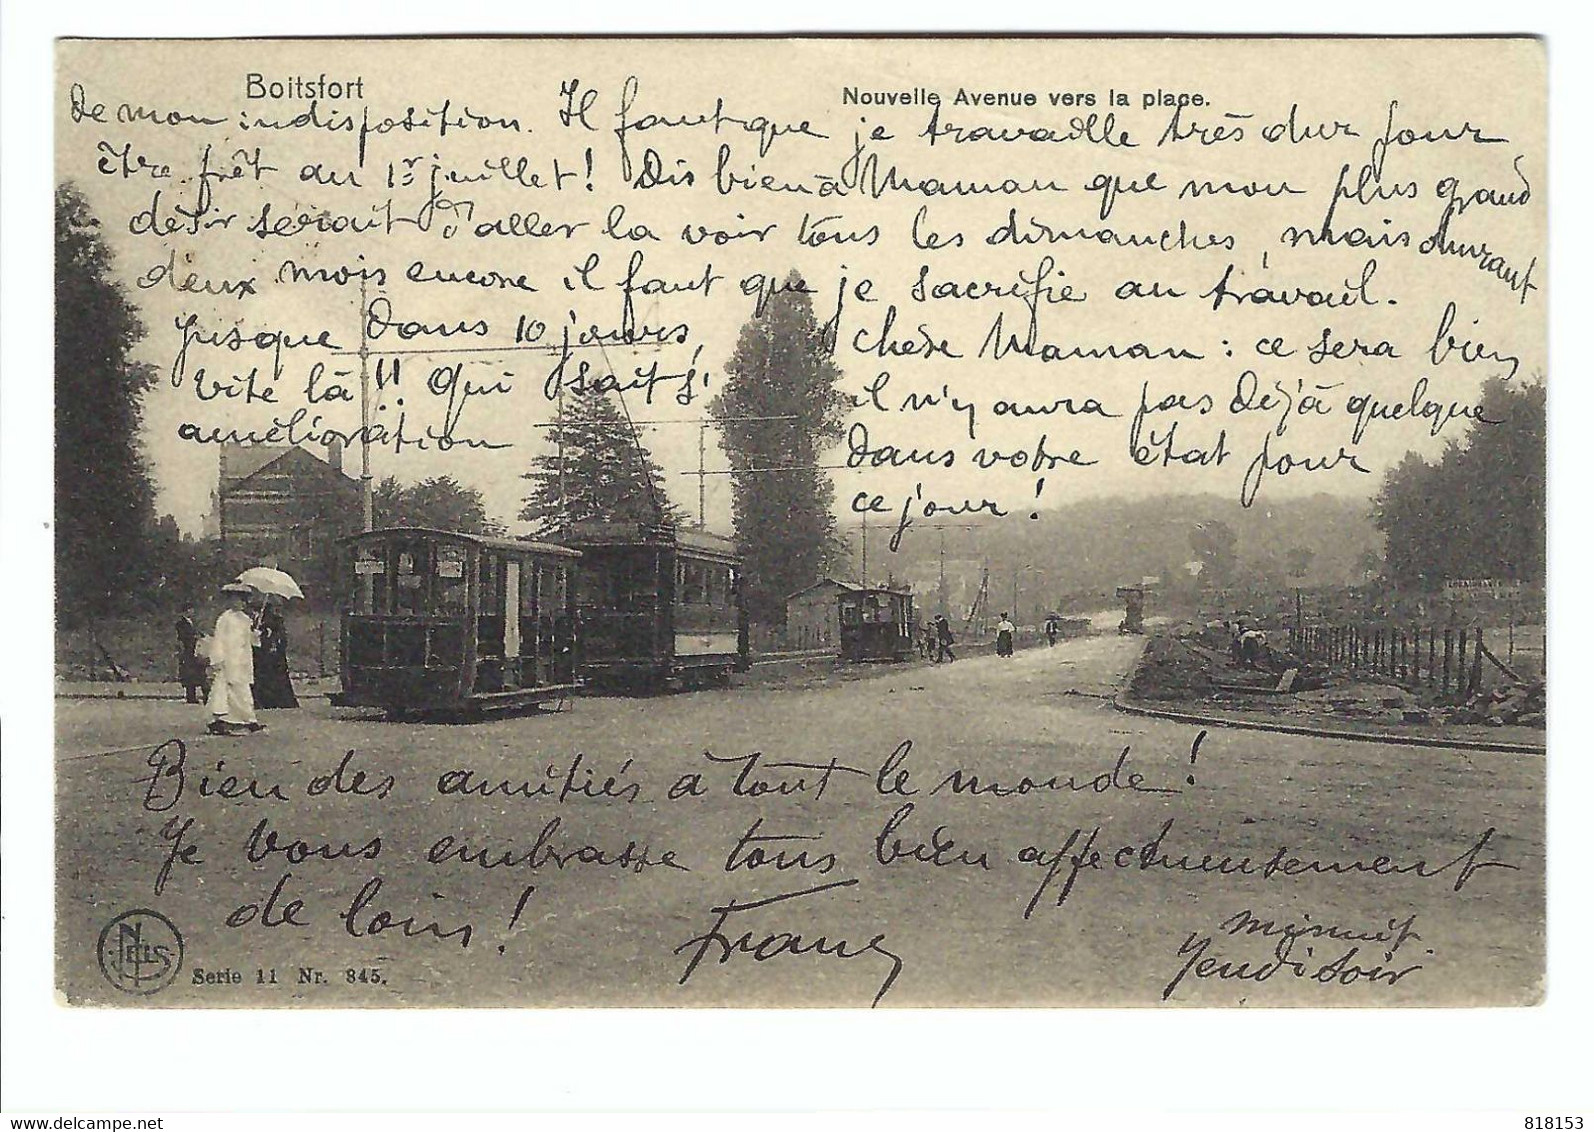 Boitsfort
Nouvelle Avenue vers la place.
de mon indisposition. Il faut que je travaille très dur pour
être prêt au 1er juillet! Dis bien à Maman que mon plus grand
désir serait d'aller la voir tous les dimanches, mais durant
deux mois encore il faut que je sacrifie au travail.
Jusque dans 10 jours, chère Maman: ce sera bien
vite là!! Qui sait s' il n'y aura pas déjà quelque
amélioration dans votre état pour
ce jour!
Bien des amitiés à tout le monde!
Je vous embrasse tous bien affectueusement
de loin!
Franz
minuit
Jeudi soir
NELS
Serie 11 Nr. 845.
www.delcampe.net
Uurwerkje
818153